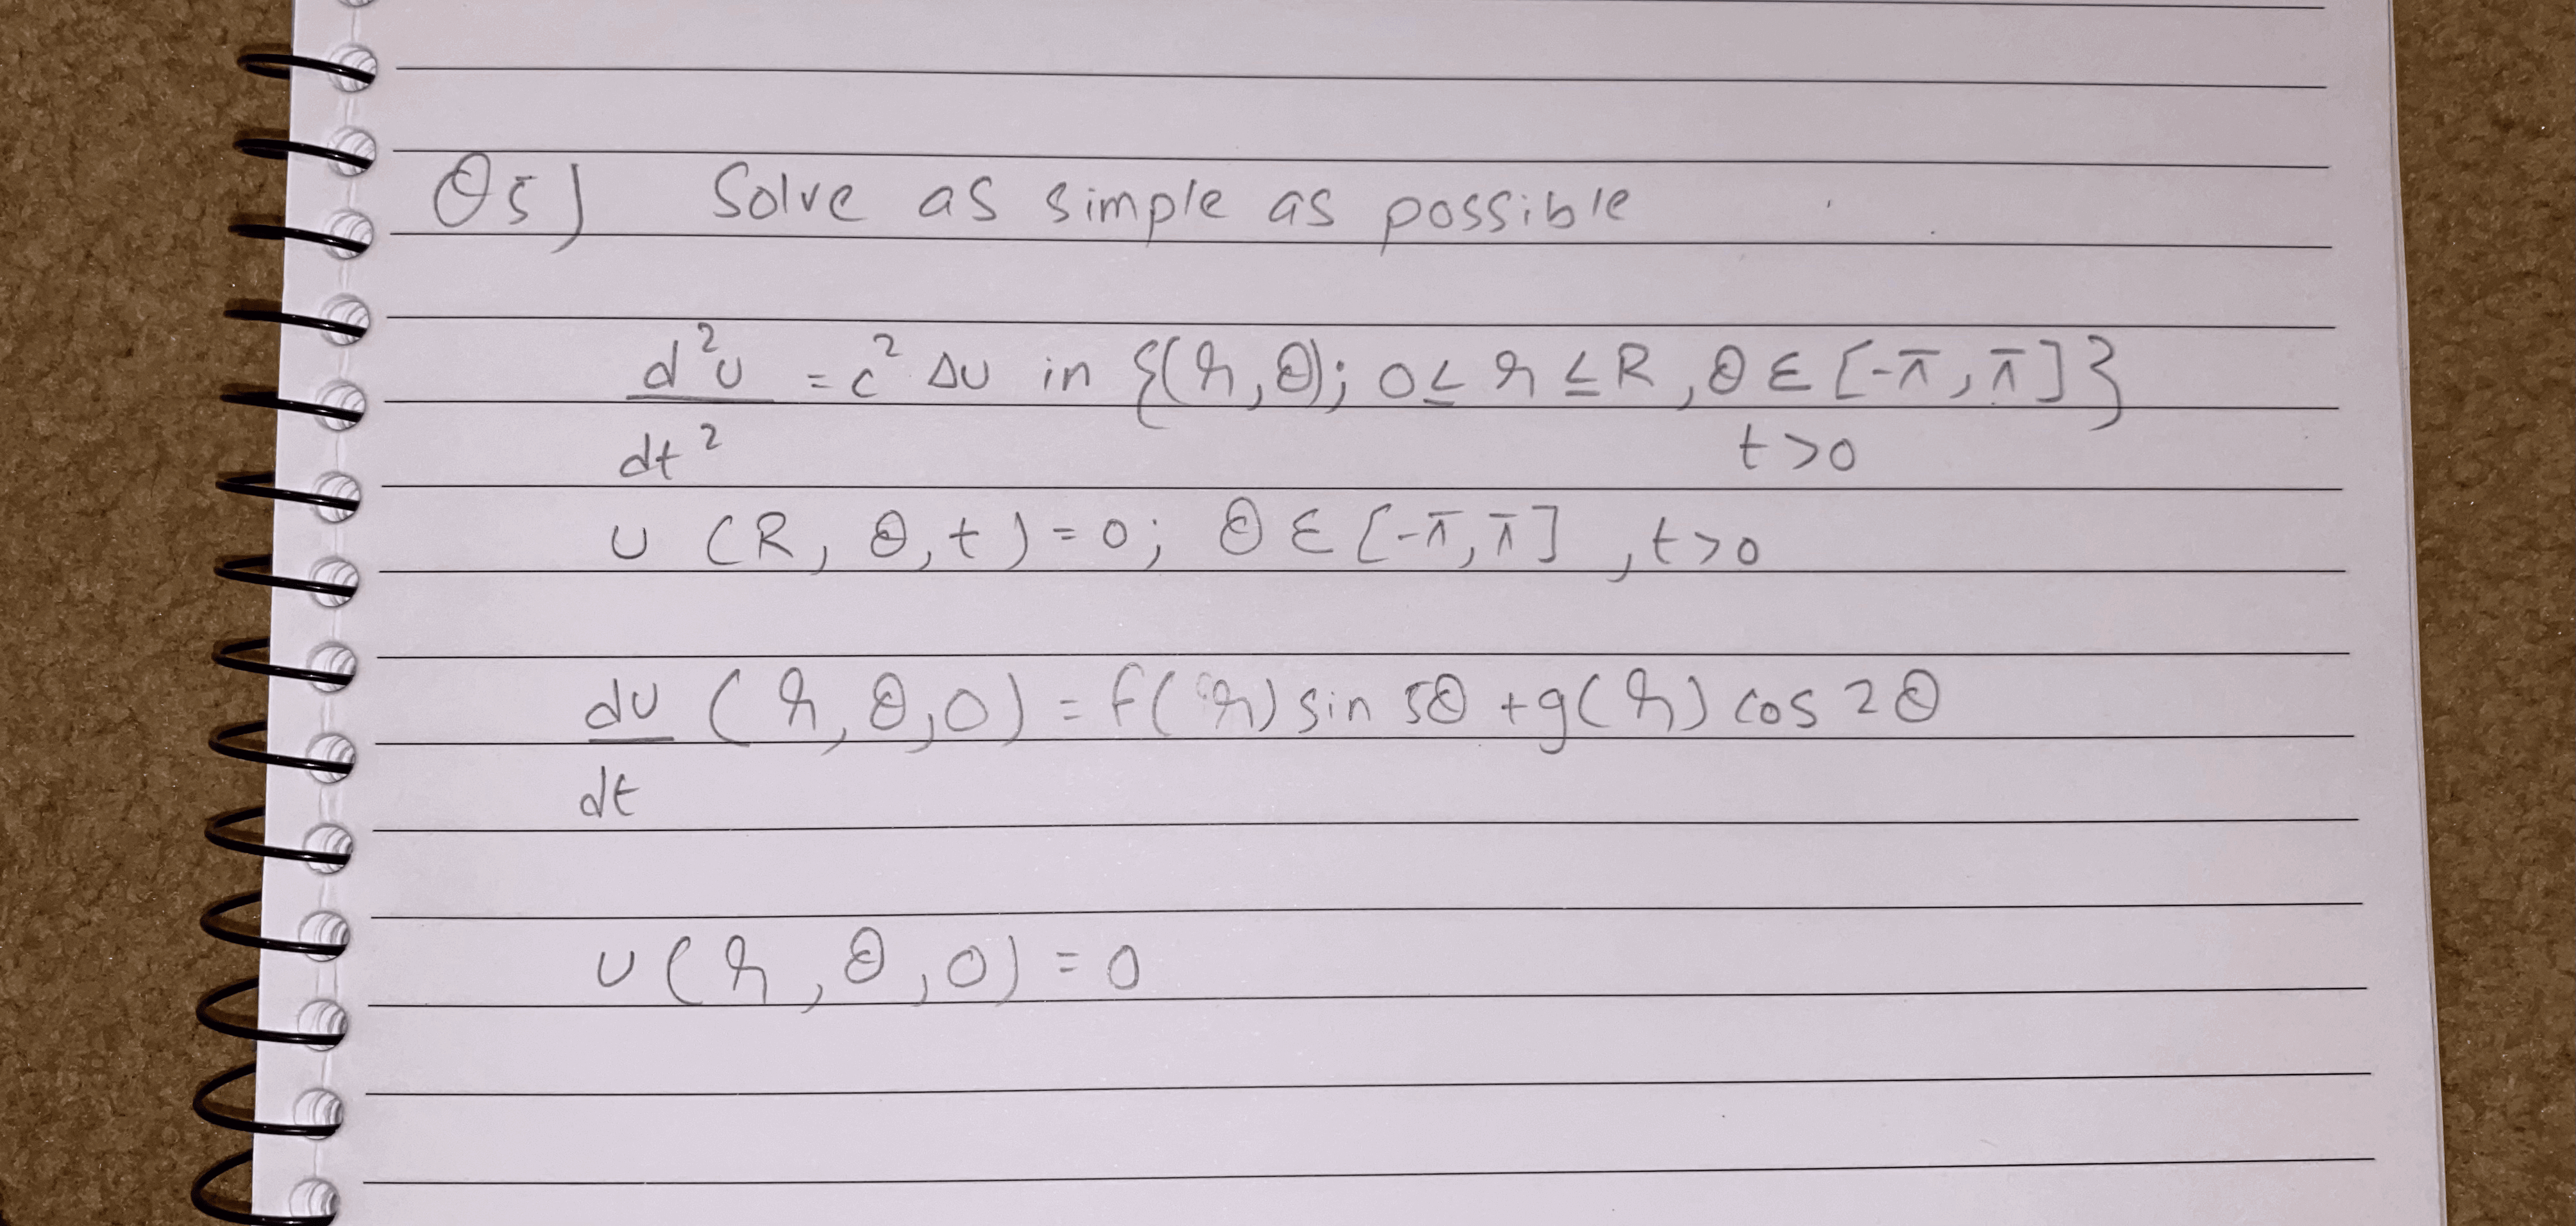 Q5) Solve as simple as possible
d²u/dt² = c² Δu in {(r, θ); 0 ≤ r ≤ R, θ ∈ [-π, π]}
t > 0
u (R, θ, t) = 0; θ ∈ [-π, π], t > 0
du/dt (r, θ, 0) = f(r) sin 5θ + g(r) cos 2θ
u (r, θ, 0) = 0